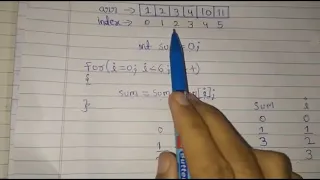 arr → 1 2 3 4 10 11
index → 0 1 2 3 4 5
int sum = 0;
for(i=0; i<6;
{
sum = sum [i];
}
sum i
0 0 0
1 1 1
3 2
3